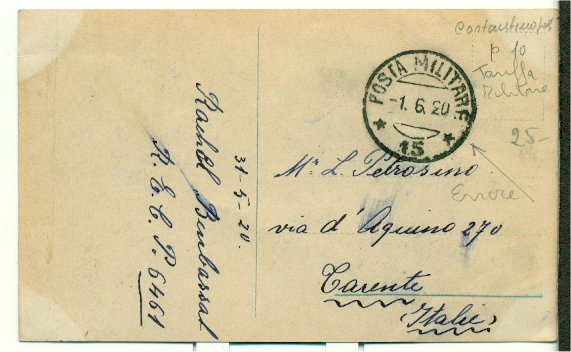 31-5-20.
Rachel Benbassat
R. E. C. P. 6461
POSTA MILITARE
-1. 6. 20
15
Constantinopoli
p 10
Tariffa
Militare
25-
Errore
Mr L. Petrosino
via d' Aquino 270
Tarente
(Italie)